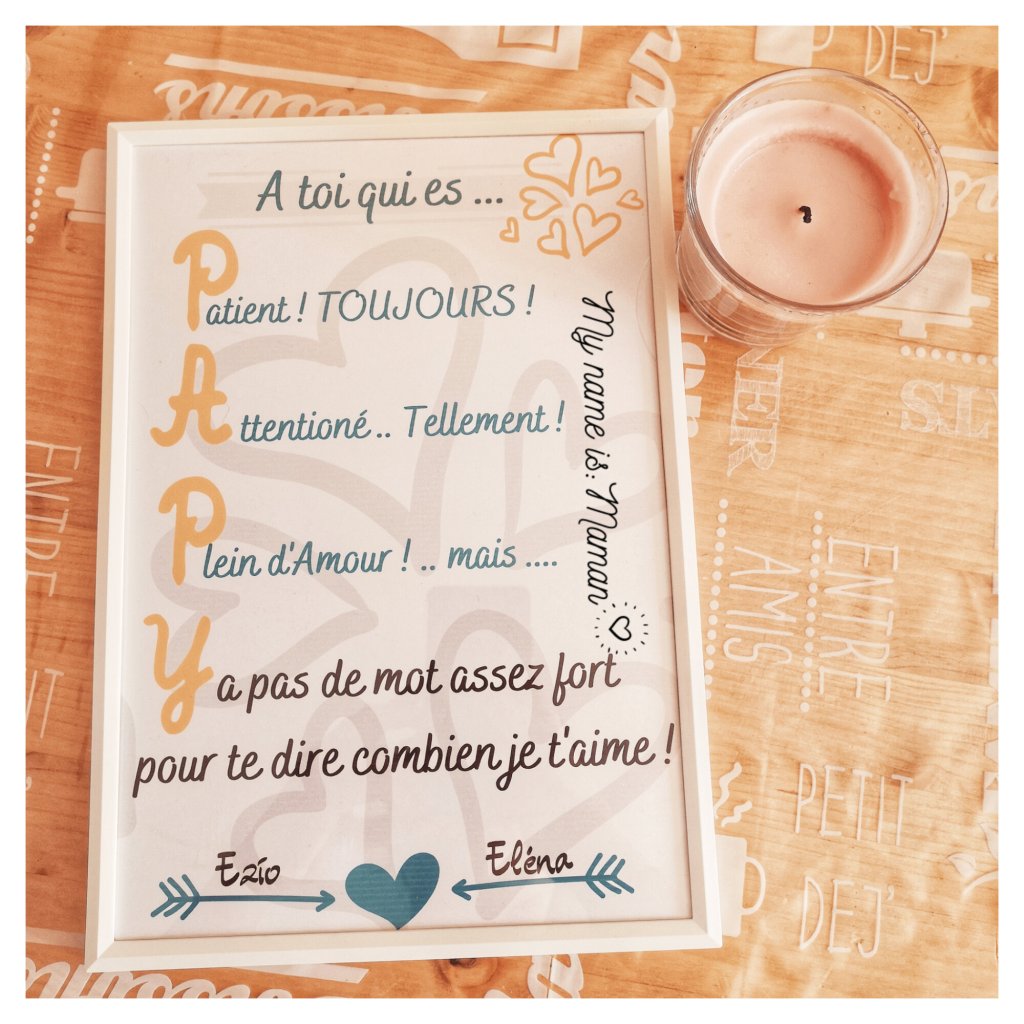 A toi qui es ...
Patient ! TOUJOURS !
Attentioné .. Tellement !
Plein d'Amour ! .. mais ....
Y a pas de mot assez fort
pour te dire combien je t'aime !
Ezio
Eléna
My name is: Maman
DEJ'
ENTRE
AMIS
ENTRE
PETIT
DEJ'
ENTRE